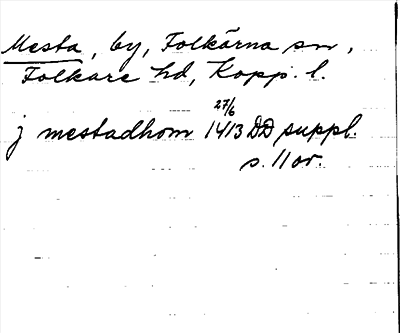 Mesta, by, Folkärna sn,
Folkare hd, Kopp. l.
j mestadhom 27/6 1413 DD suppl.
s. 11 or.